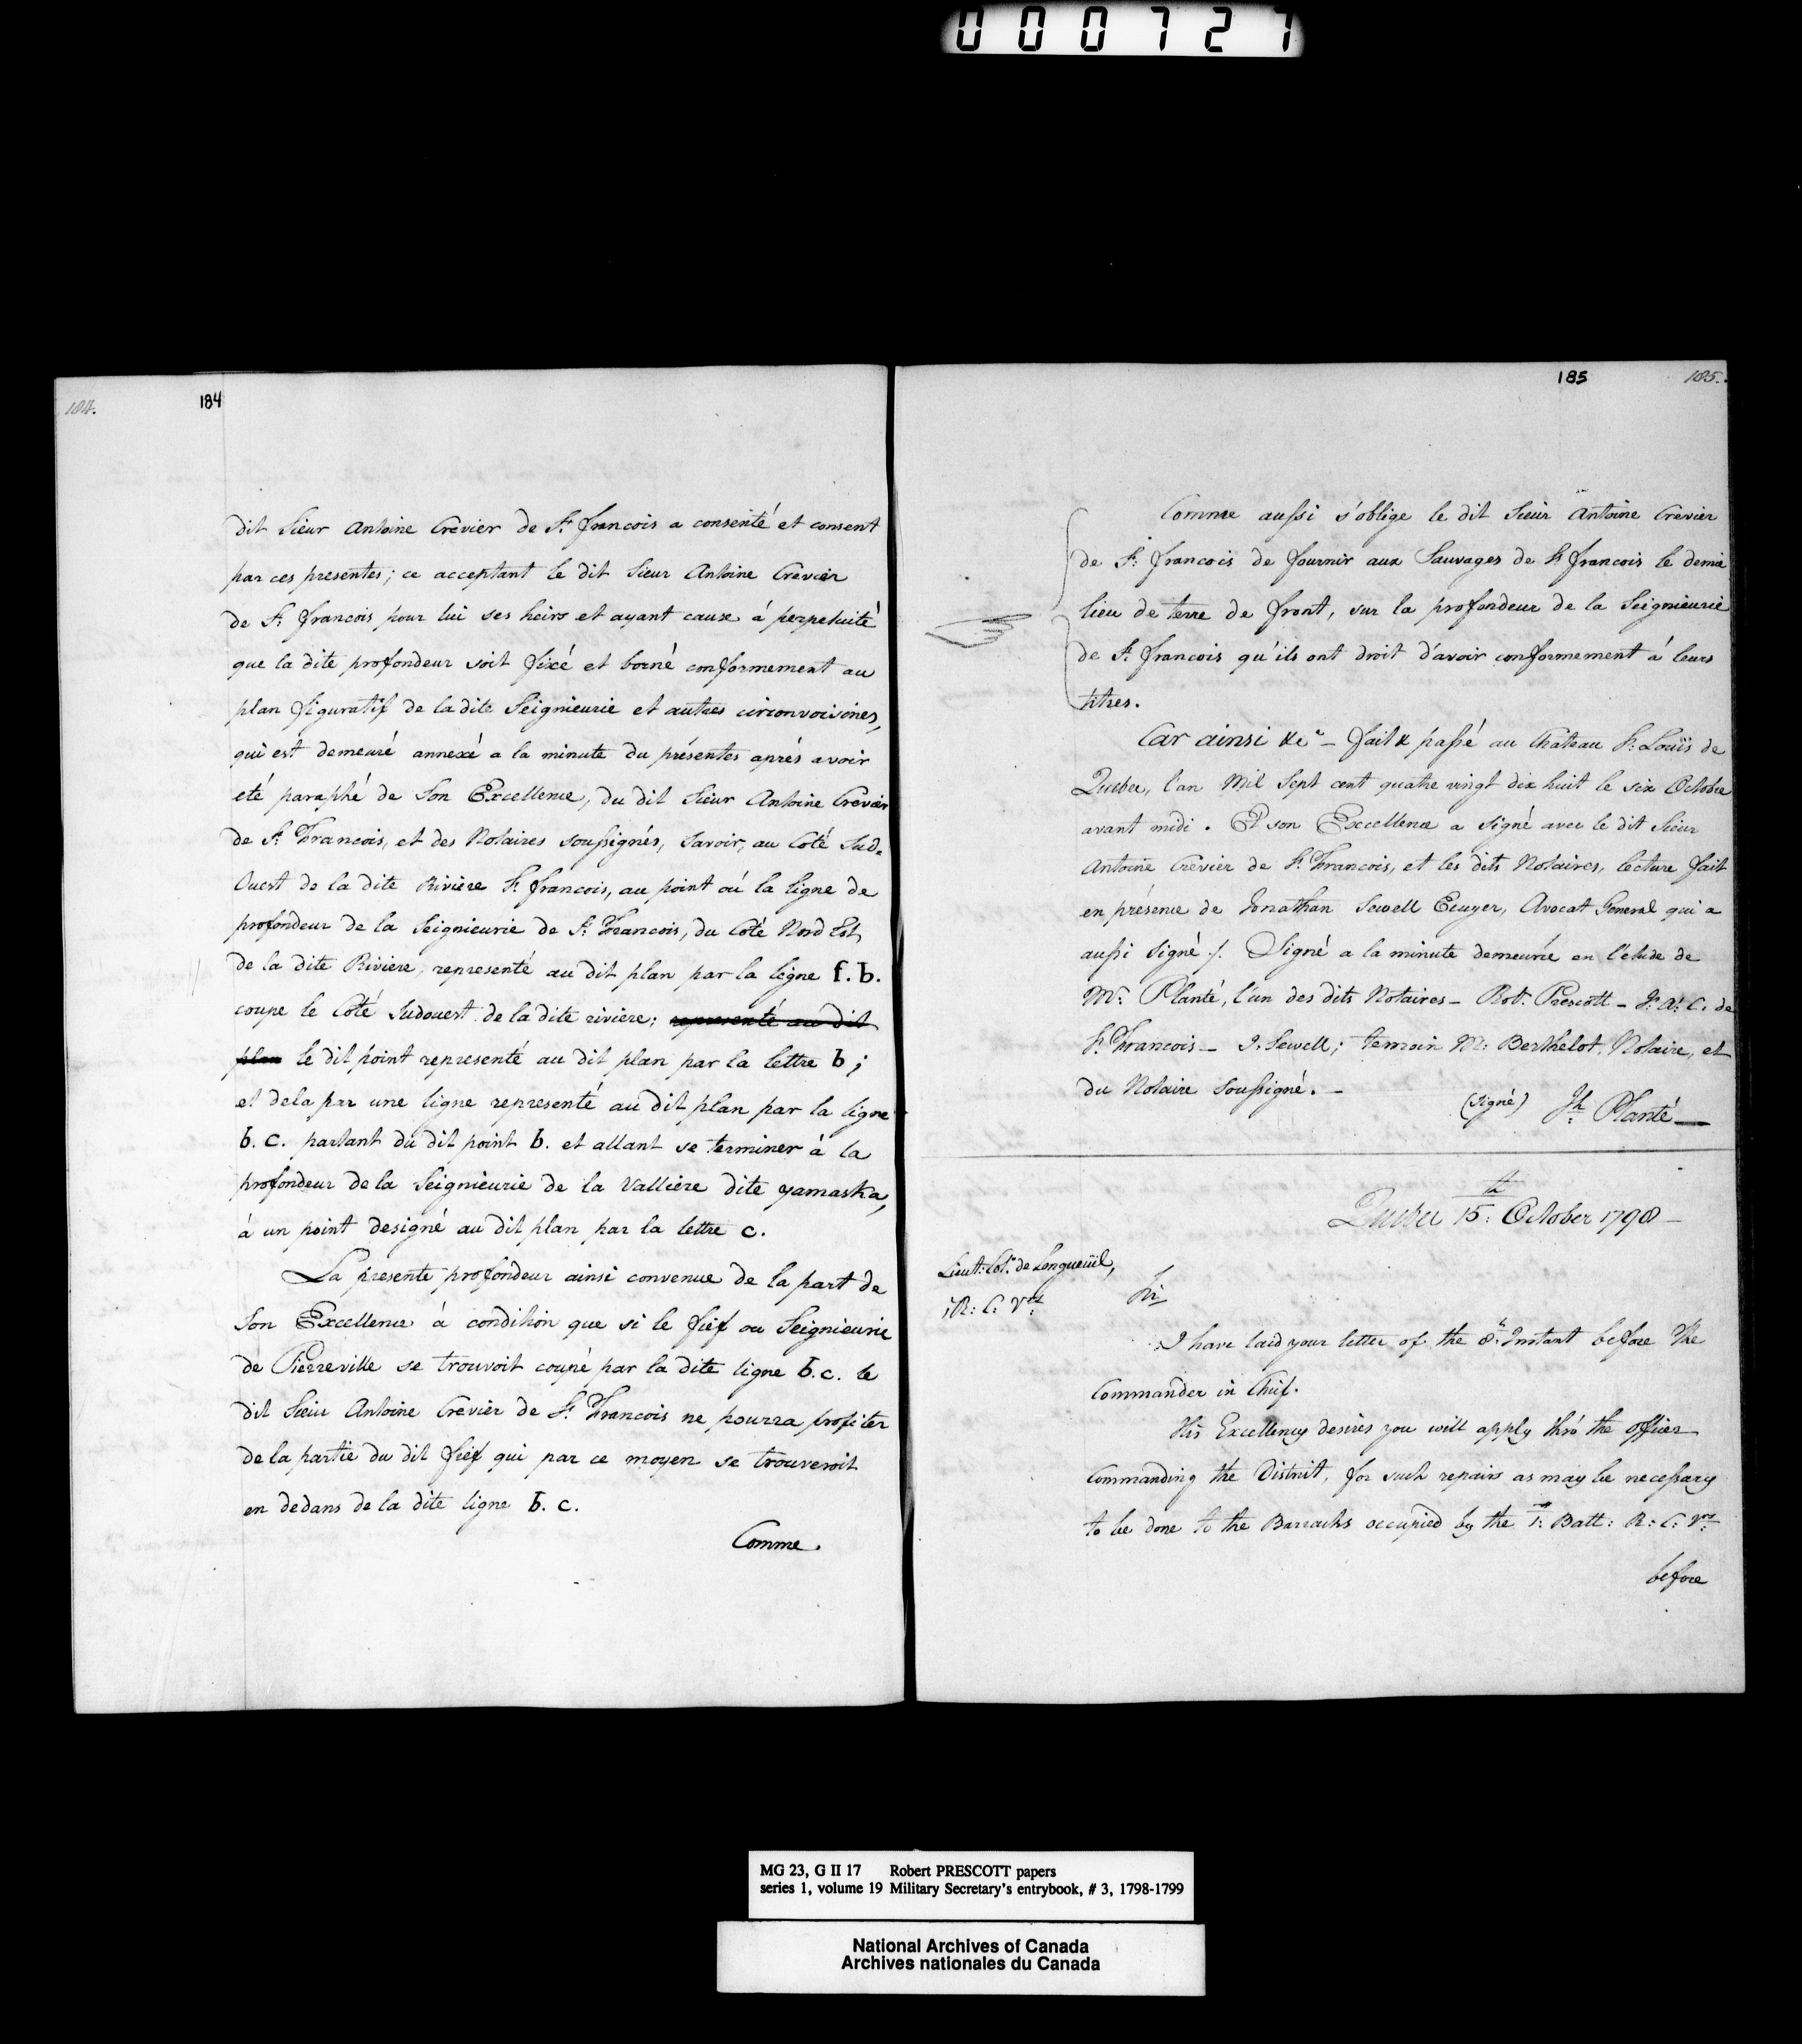 000727
184.
184
dit Sieur Antoine Crevier de St. francois a consenté et consent
par ces presentes; ce acceptant le dit Sieur Antoine Crevier
de St. francois pour lui ses heirs et ayant cause á perpetuité
que la dite profondeur soit fixé et borné conformement au
plan figuratif de la dite Seignieurie et autres circonvoisines,
qui est demeuré annexé a la minute du présentes aprés avoir
eté paraphé de Son Excellence, du dit Sieur Antoine Crevier
de St. Francois, et des Notaires soussignés, Savoir, au Coté Sud=
Ouest de la dite Riviére St. francois, au point oú la ligne de
profondeur de la Seignieurie de St. Francois, du Coté Nord Est,
de la dite Riviere, representé au dit plan par la ligne f. b.
coupe le Coté Sudouest de la dite riviere; representé au dit
plan le dit point representé au dit plan par la lettre b;
et dela par une ligne representé au dit plan par la ligne
b. c. partant du dit point b. et allant se terminer à la
profondeur de la Seignieurie de la Valliere dite yamaska,
à un point designé au dit plan par la lettre c.
La presente profondeur ainsi convenue de la part de
Son Excellence à condition que si le fief ou Seignieurie
de Pierreville se trouvoit coupé par la dite ligne b. c. le
dit Sieur Antoine Crevier de St. Francois ne pourra profiter
de la partie du dit fief qui par ce moyen se trouveroit
en dedans de la dite ligne b. c.
Comme
185
185.
Comme aussi s'oblige le dit Sieur Antoine Crevier
de St. francois de fournir aux Sauvages de St francois le demie
lieu de terre de front, sur la profondeur de la Seignieurie
de St. francois qu'ils ont droit d'avoir conformement á leurs
titres.
Car ainsi &c. – fait & passé au Chateau St. Louïs de
Quebec, l'an Mil Sept cent quatre vingt dix huit le six Octobre
avant midi. Et son Excellence a signé avec le dit Sieur
Antoine Crevier de St. Francois, et les dits Notaires, lecture fait
en présence de Jonathan Sewell Ecuyer, Avocat General qui a
aussi signé ⁒. Signé a la minute demeurée en l'etude de
Mr. Planté, l'un des dits Notaires – Robt. Prescott – Jh. A. C. de
St. Francois – J. Sewell; temoin M. Berthelot, Notaire, et
du Notaire Soussigné. –
(Signé) Jh. Planté —
Quebec 15th. October 1798 –
Lieut. Col. de Longueüil,
1 R: C: Vrs
Sir
I have laid your letter of the 8th. Instant before the
Commander in Chief.
His Excellency desires you will apply thro' the Officer
Commanding the District, for such repairs as may be necessary
to be done to the Barracks occupied by the 1st. Batt: R: C: Vrs.
before
MG 23, G II 17 Robert PRESCOTT papers
series 1, volume 19 Military Secretary's entrybook, # 3, 1798-1799
National Archives of Canada
Archives nationales du Canada